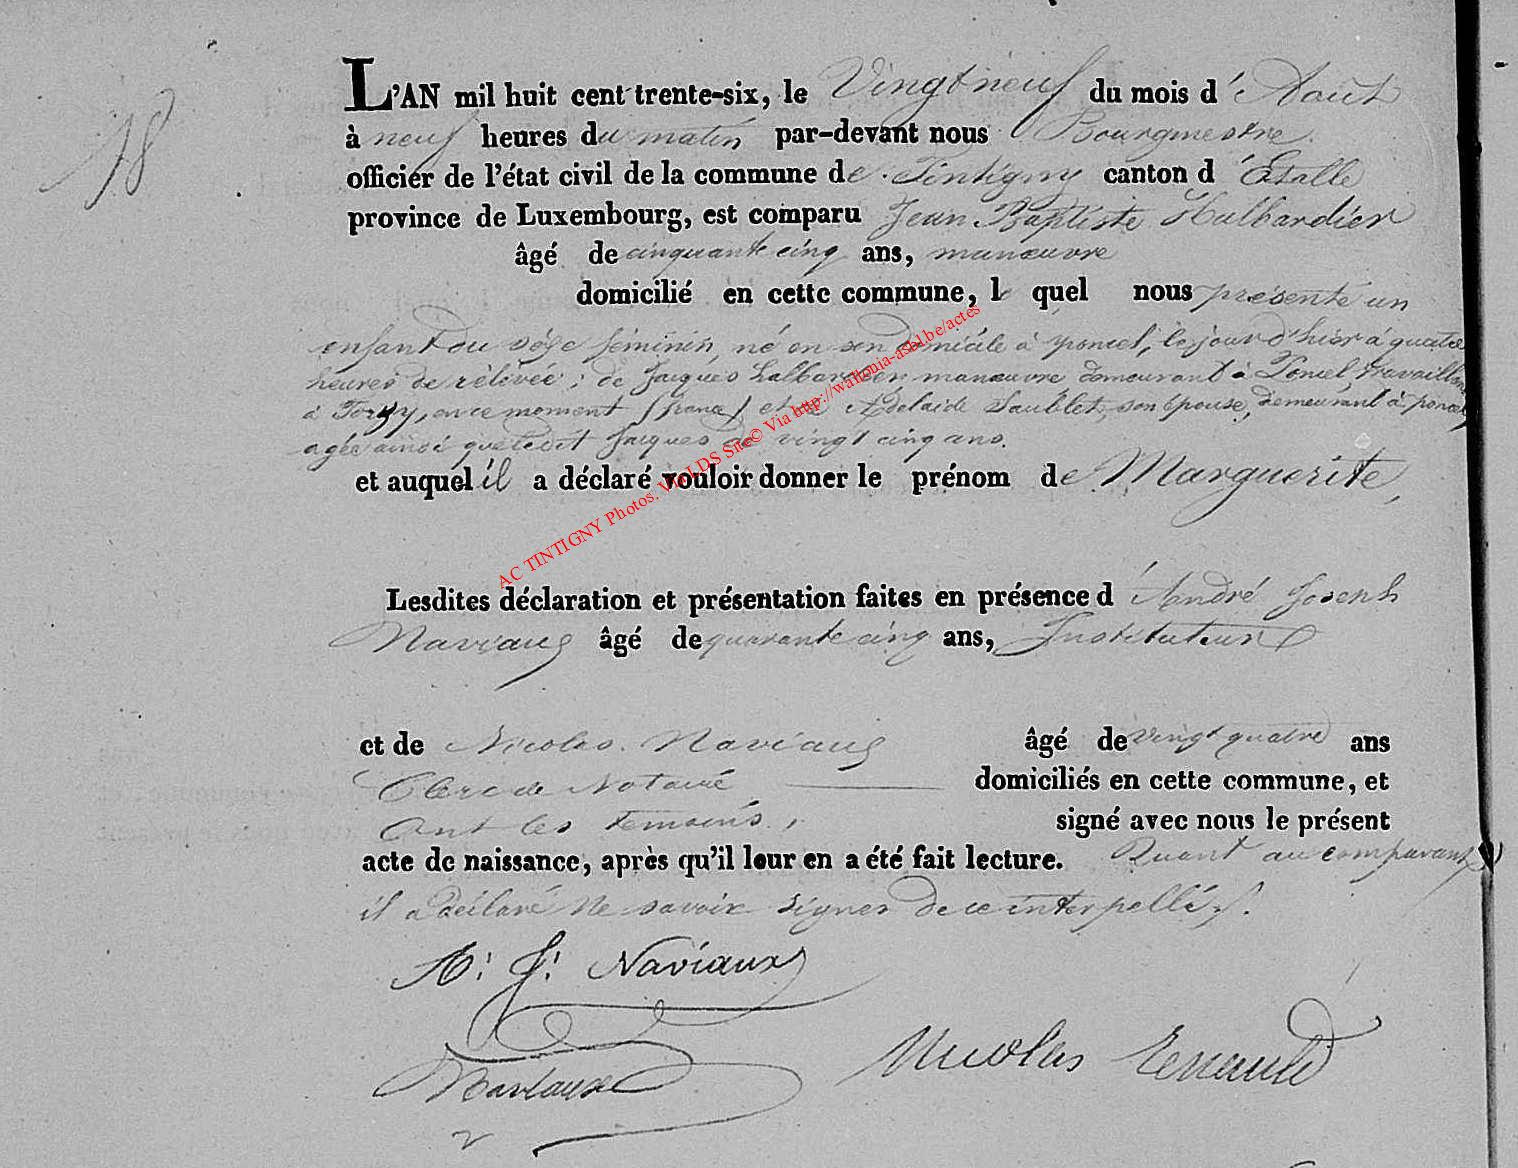 18
L'AN mil huit cent trente-six, le Vingt neuf du mois d'Août
à neuf heures du matin par-devant nous Bourgmestre
officier de l'état civil de la commune de Tintigny canton d'Etalle
province de Luxembourg, est comparu Jean Baptiste Halbardier
âgé de cinquante cinq ans, manœuvre
domicilié en cette commune, le quel nous présenté un
enfant du séxe féminin, né en son domicile à poncel, le jour d'hier à quatre
heures de rélévée; de Jacques halbardier manœuvre demeurant à Poncel, travaillant
à Torgny, en ce moment (france) et de Adelaide Saublet, son épouse, demeurant à poncel,
agée ainsi que ledit Jacques de vingt cinq ans.
et auquel il a déclaré vouloir donner le prénom de Marguerite,
Lesdites déclaration et présentation faites en présence d'André Joseph
Naviaux âgé de quarante cinq ans, Instituteur
et de Nicolas Naviaux âgé de vingt quatre ans
Clerc de Notaire domiciliés en cette commune, et
Ont les temoins, signé avec nous le présent
acte de naissance, après qu'il leur en a été fait lecture. Quant au comparant,
il a déclaré ne savoir signer de ce interpellé.
A. J. Naviaux
Naviaux Nicolas Renauld
AC TINTIGNY Photos. Via LDS Site© Via http://wallonia-asbl.be/actes